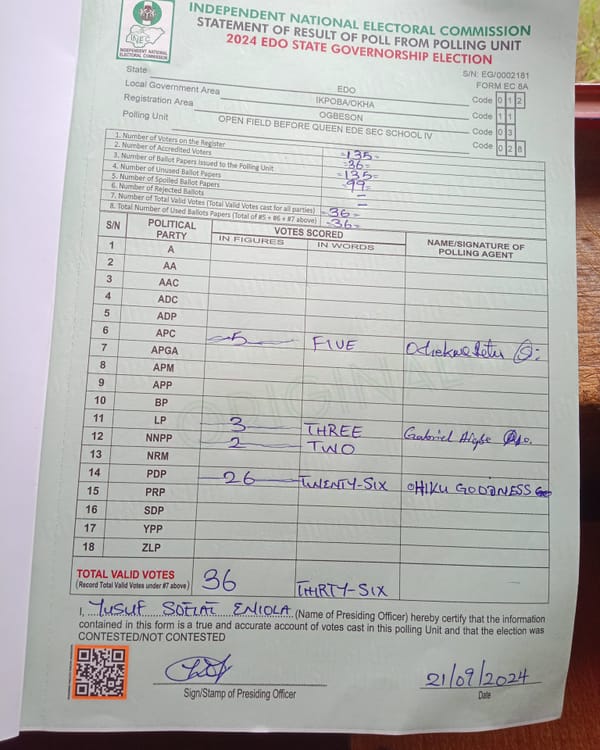 INDEPENDENT NATIONAL ELECTORAL COMMISSION
STATEMENT OF RESULT OF POLL FROM POLLING UNIT
2024 EDO STATE GOVERNORSHIP ELECTION
INEC
INDEPENDENT NATIONAL
ELECTORAL COMMISSION
S/N: EG/0002181
FORM EC 8A
State EDO Code 0 1 2
Local Government Area IKPOBA/OKHA Code 1 1
Registration Area OGBESON Code 0 3
Polling Unit OPEN FIELD BEFORE QUEEN EDE SEC SCHOOL IV Code 0 2 8
1. Number of Voters on the Register =135=
2. Number of Accredited Voters =36=
3. Number of Ballot Papers Issued to the Polling Unit =135=
4. Number of Unused Ballot Papers =99=
5. Number of Spoiled Ballot Papers =
6. Number of Rejected Ballots =
7. Number of Total Valid Votes (Total Valid Votes cast for all parties) =36=
8. Total Number of Used Ballots Papers (Total of #5 + #6 + #7 above) =36=
S/N POLITICAL PARTY VOTES SCORED NAME/SIGNATURE OF POLLING AGENT
IN FIGURES IN WORDS
1 A
2 AA
3 AAC
4 ADC
5 ADP
6 APC 5 FIVE
7 APGA
8 APM
9 APP
10 BP
11 LP 3 THREE Gabriel
12 NNPP 2 TWO
13 NRM
14 PDP 26 TWENTY-SIX OHIKU GOODNESS
15 PRP
16 SDP
17 YPP
18 ZLP
ORIGINAL
TOTAL VALID VOTES 36 THIRTY-SIX
(Record Total Valid Votes under #7 above)
I, YUSUF ENIOLA (Name of Presiding Officer) hereby certify that the information
contained in this form is a true and accurate account of votes cast in this polling Unit and that the election was
CONTESTED/NOT CONTESTED
21/09/2024
Sign/Stamp of Presiding Officer Date